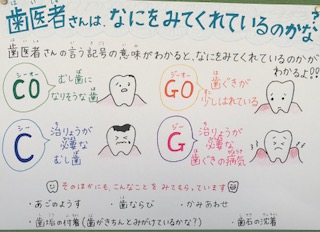 歯医者さんは、なにをみてくれているのかな?
歯医者さんの言う記号の意味がわかると、なにをみてくれているのかが
わかるよ!!
シーオー
CO
むし歯に
なりそうな歯
ジーオー
GO
歯ぐきが
少しはれている
シー
C
治りょうが
必要な
むし歯
ジー
G
治りょうが
必要な
歯ぐきの病気
そのほかにも、こんなことをみてもらっています
・あごのようす ・歯ならび ・かみあわせ
・歯垢の付着(歯がきちんとみがけているかな?) ・歯石の沈着